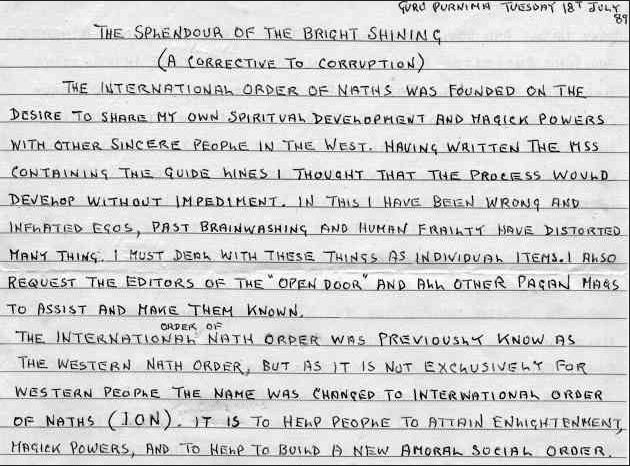 GURU PURNIMA TUESDAY 18T JULY
89
THE SPLENDOUR OF THE BRIGHT SHINING
(A CORRECTIVE TO CORRUPTION)
THE INTERNATIONAL ORDER OF NATHS WAS FOUNDED ON THE
DESIRE TO SHARE MY OWN SPIRITUAL DEVELOPMENT AND MAGICK POWERS
WITH OTHER SINCERE PEOPLE IN THE WEST. HAVING WRITTEN THE MSS
CONTAINING THE GUIDE LINES I THOUGHT THAT THE PROCESS WOULD
DEVELOP WITHOUT IMPEDIMENT. IN THIS I HAVE BEEN WRONG AND
INFLATED EGOS, PAST BRAINWASHING AND HUMAN FRAILTY HAVE DISTORTED
MANY THING. I MUST DEAL WITH THESE THINGS AS INDIVIDUAL ITEMS. I ALSO
REQUEST THE EDITORS OF THE "OPEN DOOR" AND ALL OTHER PAGAN MAGS
TO ASSIST AND MAKE THEM KNOWN.
ORDER OF
THE INTERNATIONAL NATH ORDER WAS PREVIOUSLY KNOW AS
THE WESTERN NATH ORDER, BUT AS IT IS NOT EXCLUSIVELY FOR
WESTERN PEOPLE THE NAME WAS CHANGED TO INTERNATIONAL ORDER
OF NATHS (I.O.N). IT IS TO HELP PEOPLE TO ATTAIN ENLIGHTENMENT,
MAGICK POWERS, AND TO HELP TO BUILD A NEW AMORAL SOCIAL ORDER.